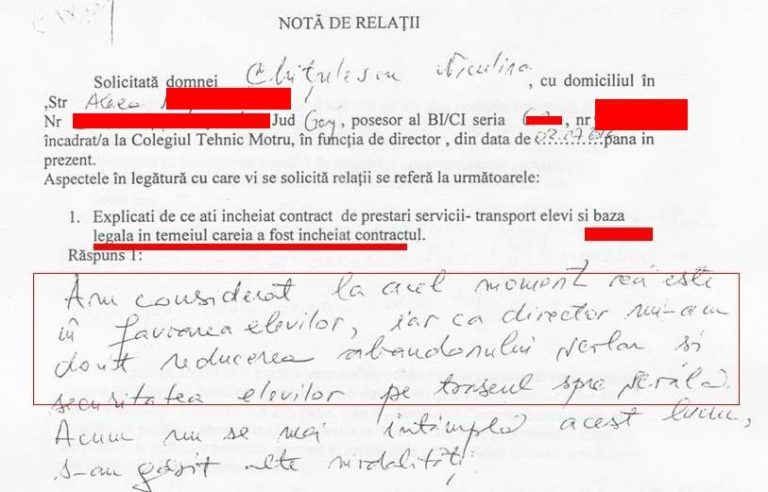 NOTĂ DE RELAȚII
Solicitată domnei Chitulescu Niculina, cu domiciliul în
,Str Aleea
Nr Jud Gorj, posesor al BI/CI seria , nr
încadrat/a la Colegiul Tehnic Motru, în funcția de director , din data de 02.07.2012 pana in
prezent.
Aspectele în legătură cu care vi se solicită relații se referă la următoarele:
1. Explicati de ce ati incheiat contract de prestari servicii- transport elevi si baza
legala in temeiul careia a fost incheiat contractul.
Răspuns 1:
Am considerat la acel moment că este
în favoarea elevilor, iar ca director mi-am
dorit reducerea abandonului școlar și
securitatea elevilor pe traseul spre școală.
Acum nu se mai întâmplă acest lucru,
s-au găsit alte modalități;